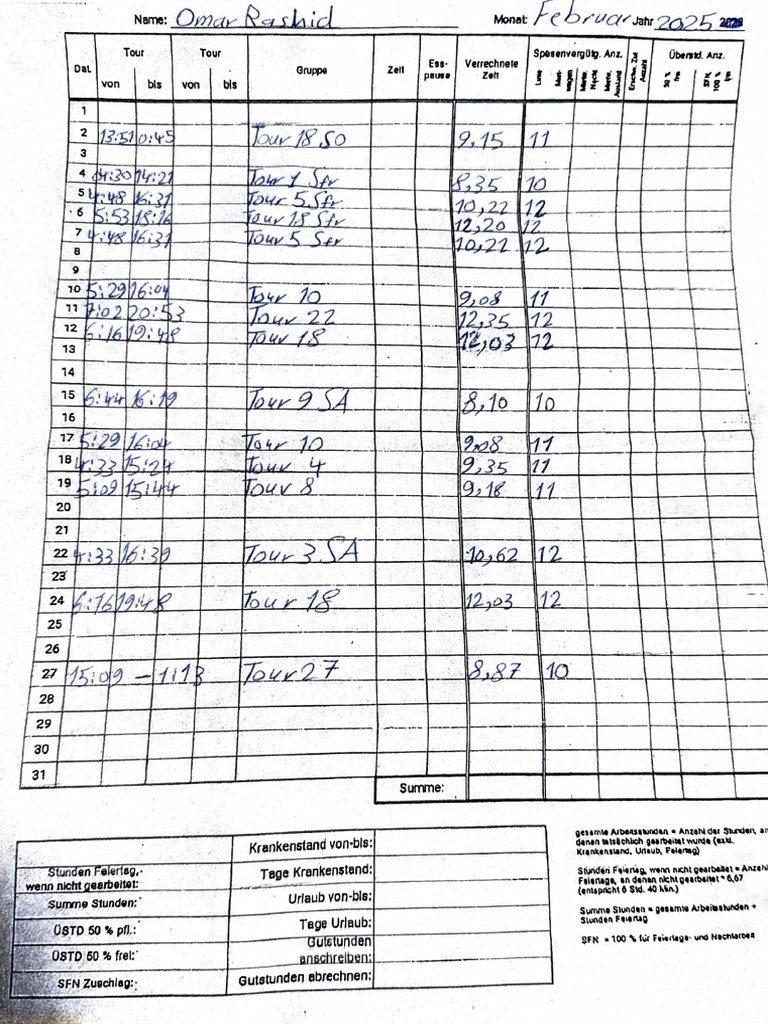 Name: Omar Rashid Monat: Februar Jahr 2025
Dat. Tour Tour Gruppe Zeit Ess-pause Verrechnete Zeit Spesenvergütg. Anz. Überstd. Anz.
von bis von bis 50 % frei SFN, 100 %
1
2 13:51 0:45 Tour 18 SO 9,15 11
3
4 04:30 14:21 Tour 1 Sfr 8,35 10
5 4:48 16:31 Tour 5 Sfr 10,22 12
6 5:53 18:16 Tour 18 Sfr 12,20 12
7 4:48 16:31 Tour 5 Sfr 10,22 12
8
9
10 5:29 16:04 Tour 10 9,08 11
11 7:02 20:53 Tour 22 12,35 12
12 6:16 19:48 Tour 18 12,03 12
13
14
15 6:44 16:19 Tour 9 SA 8,10 10
16
17 5:29 16:04 Tour 10 9,08 11
18 4:33 15:24 Tour 4 9,35 11
19 5:09 15:44 Tour 8 9,18 11
20
21
22 4:33 16:39 Tour 3 SA 10,62 12
23
24 6:16 19:48 Tour 18 12,03 12
25
26
27 15:09 – 1:13 Tour 27 8,87 10
28
29
30
31
Summe:
Krankenstand von-bis:
Stunden Feiertag, wenn nicht gearbeitet: Tage Krankenstand:
Summe Stunden: Urlaub von-bis:
ÜSTD 50 % pfl.: Tage Urlaub:
ÜSTD 50 % frei: Gutstunden anschreiben:
SFN Zuschlag: Gutstunden abrechnen:
gesamte Arbeitsstunden = Anzahl der Stunden, an
denen tatsächlich gearbeitet wurde (exkl.
Krankenstand, Urlaub, Feiertag)
Stunden Feiertag, wenn nicht gearbeitet = Anzahl
Feiertage, an denen nicht gearbeitet * 6,67
(entspricht 6 Std. 40 Min.)
Summe Stunden = gesamte Arbeitsstunden +
Stunden Feiertag
SFN = 100 % für Feiertags- und Nachtarbeit